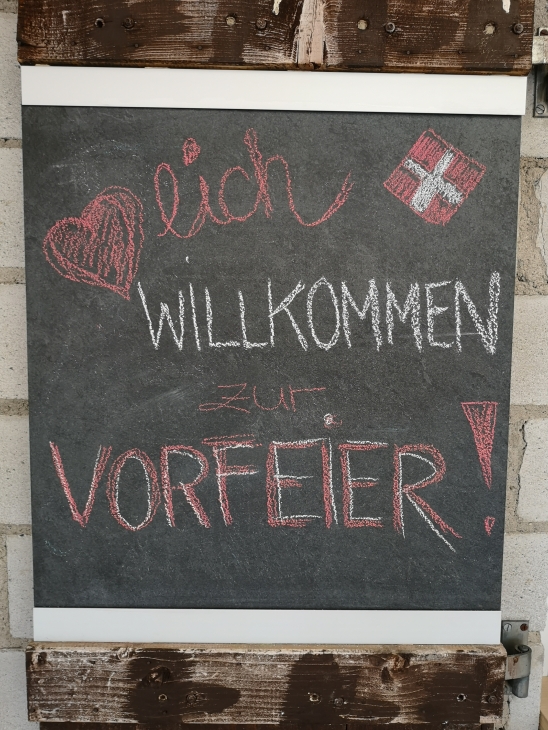 lich
WILLKOMMEN
zur
VORFEIER!